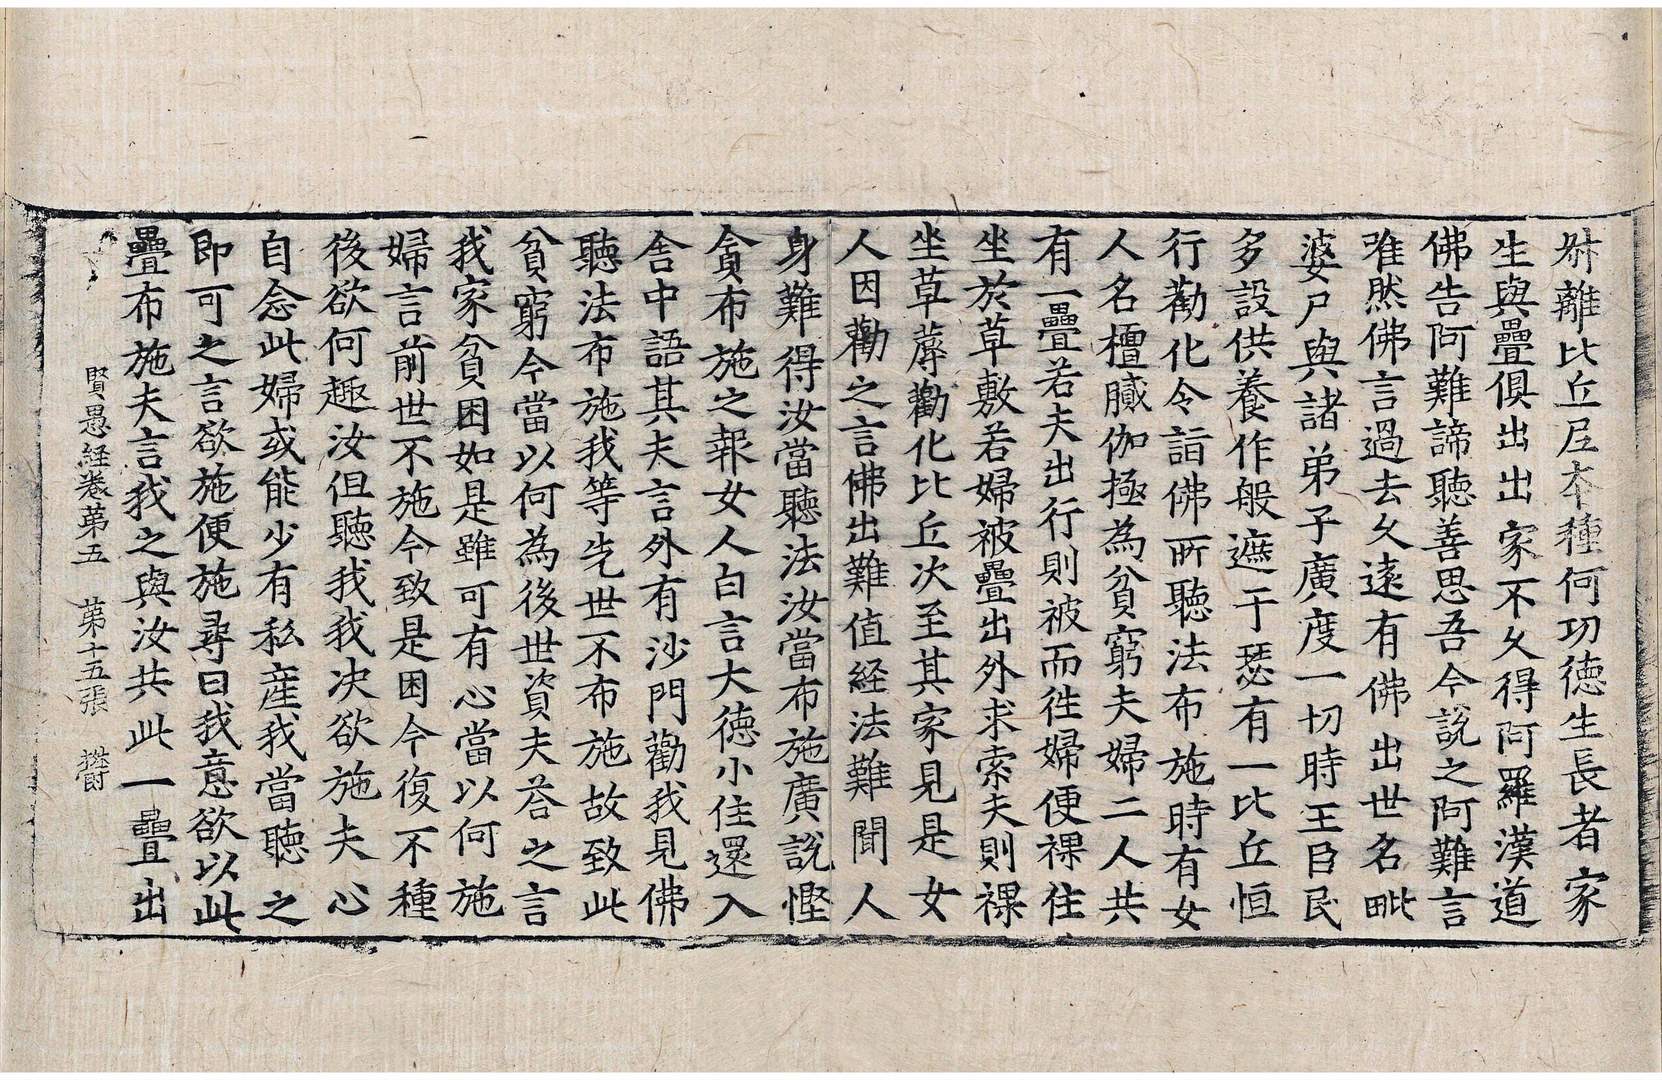 尒離比丘尼本種何功德生長者家
生與疊俱出出家不久得阿羅漢道
佛告阿難諦聽善思吾今說之阿難言
唯然佛言過去久遠有佛出世名毗
婆尸與諸弟子廣度一切時王臣民
多設供養作般遮于瑟有一比丘恒
行勸化令詣佛所聽法布施時有女
人名檀膩伽極為貧窮夫婦二人共
有一疊若夫出行則被而往婦便裸住
坐於草敷若婦被疊出外求索夫則裸
坐草蓐勸化比丘次至其家見是女
人因勸之言佛出難值経法難聞人
身難得汝當聽法汝當布施廣說慳
貪布施之報女人白言大德小住還入
舍中語其夫言外有沙門勸我見佛
聽法布施我等先世不布施故致此
貧窮今當以何為後世資夫荅之言
我家貧困如是雖可有心當以何施
婦言前世不施今致是困今復不種
後欲何趣汝但聽我我决欲施夫心
自念此婦或能少有私產我當聽之
即可之言欲施便施尋曰我意欲以此
疊布施夫言我之與汝共此一疊出
賢愚経卷第五 第十五張 欝